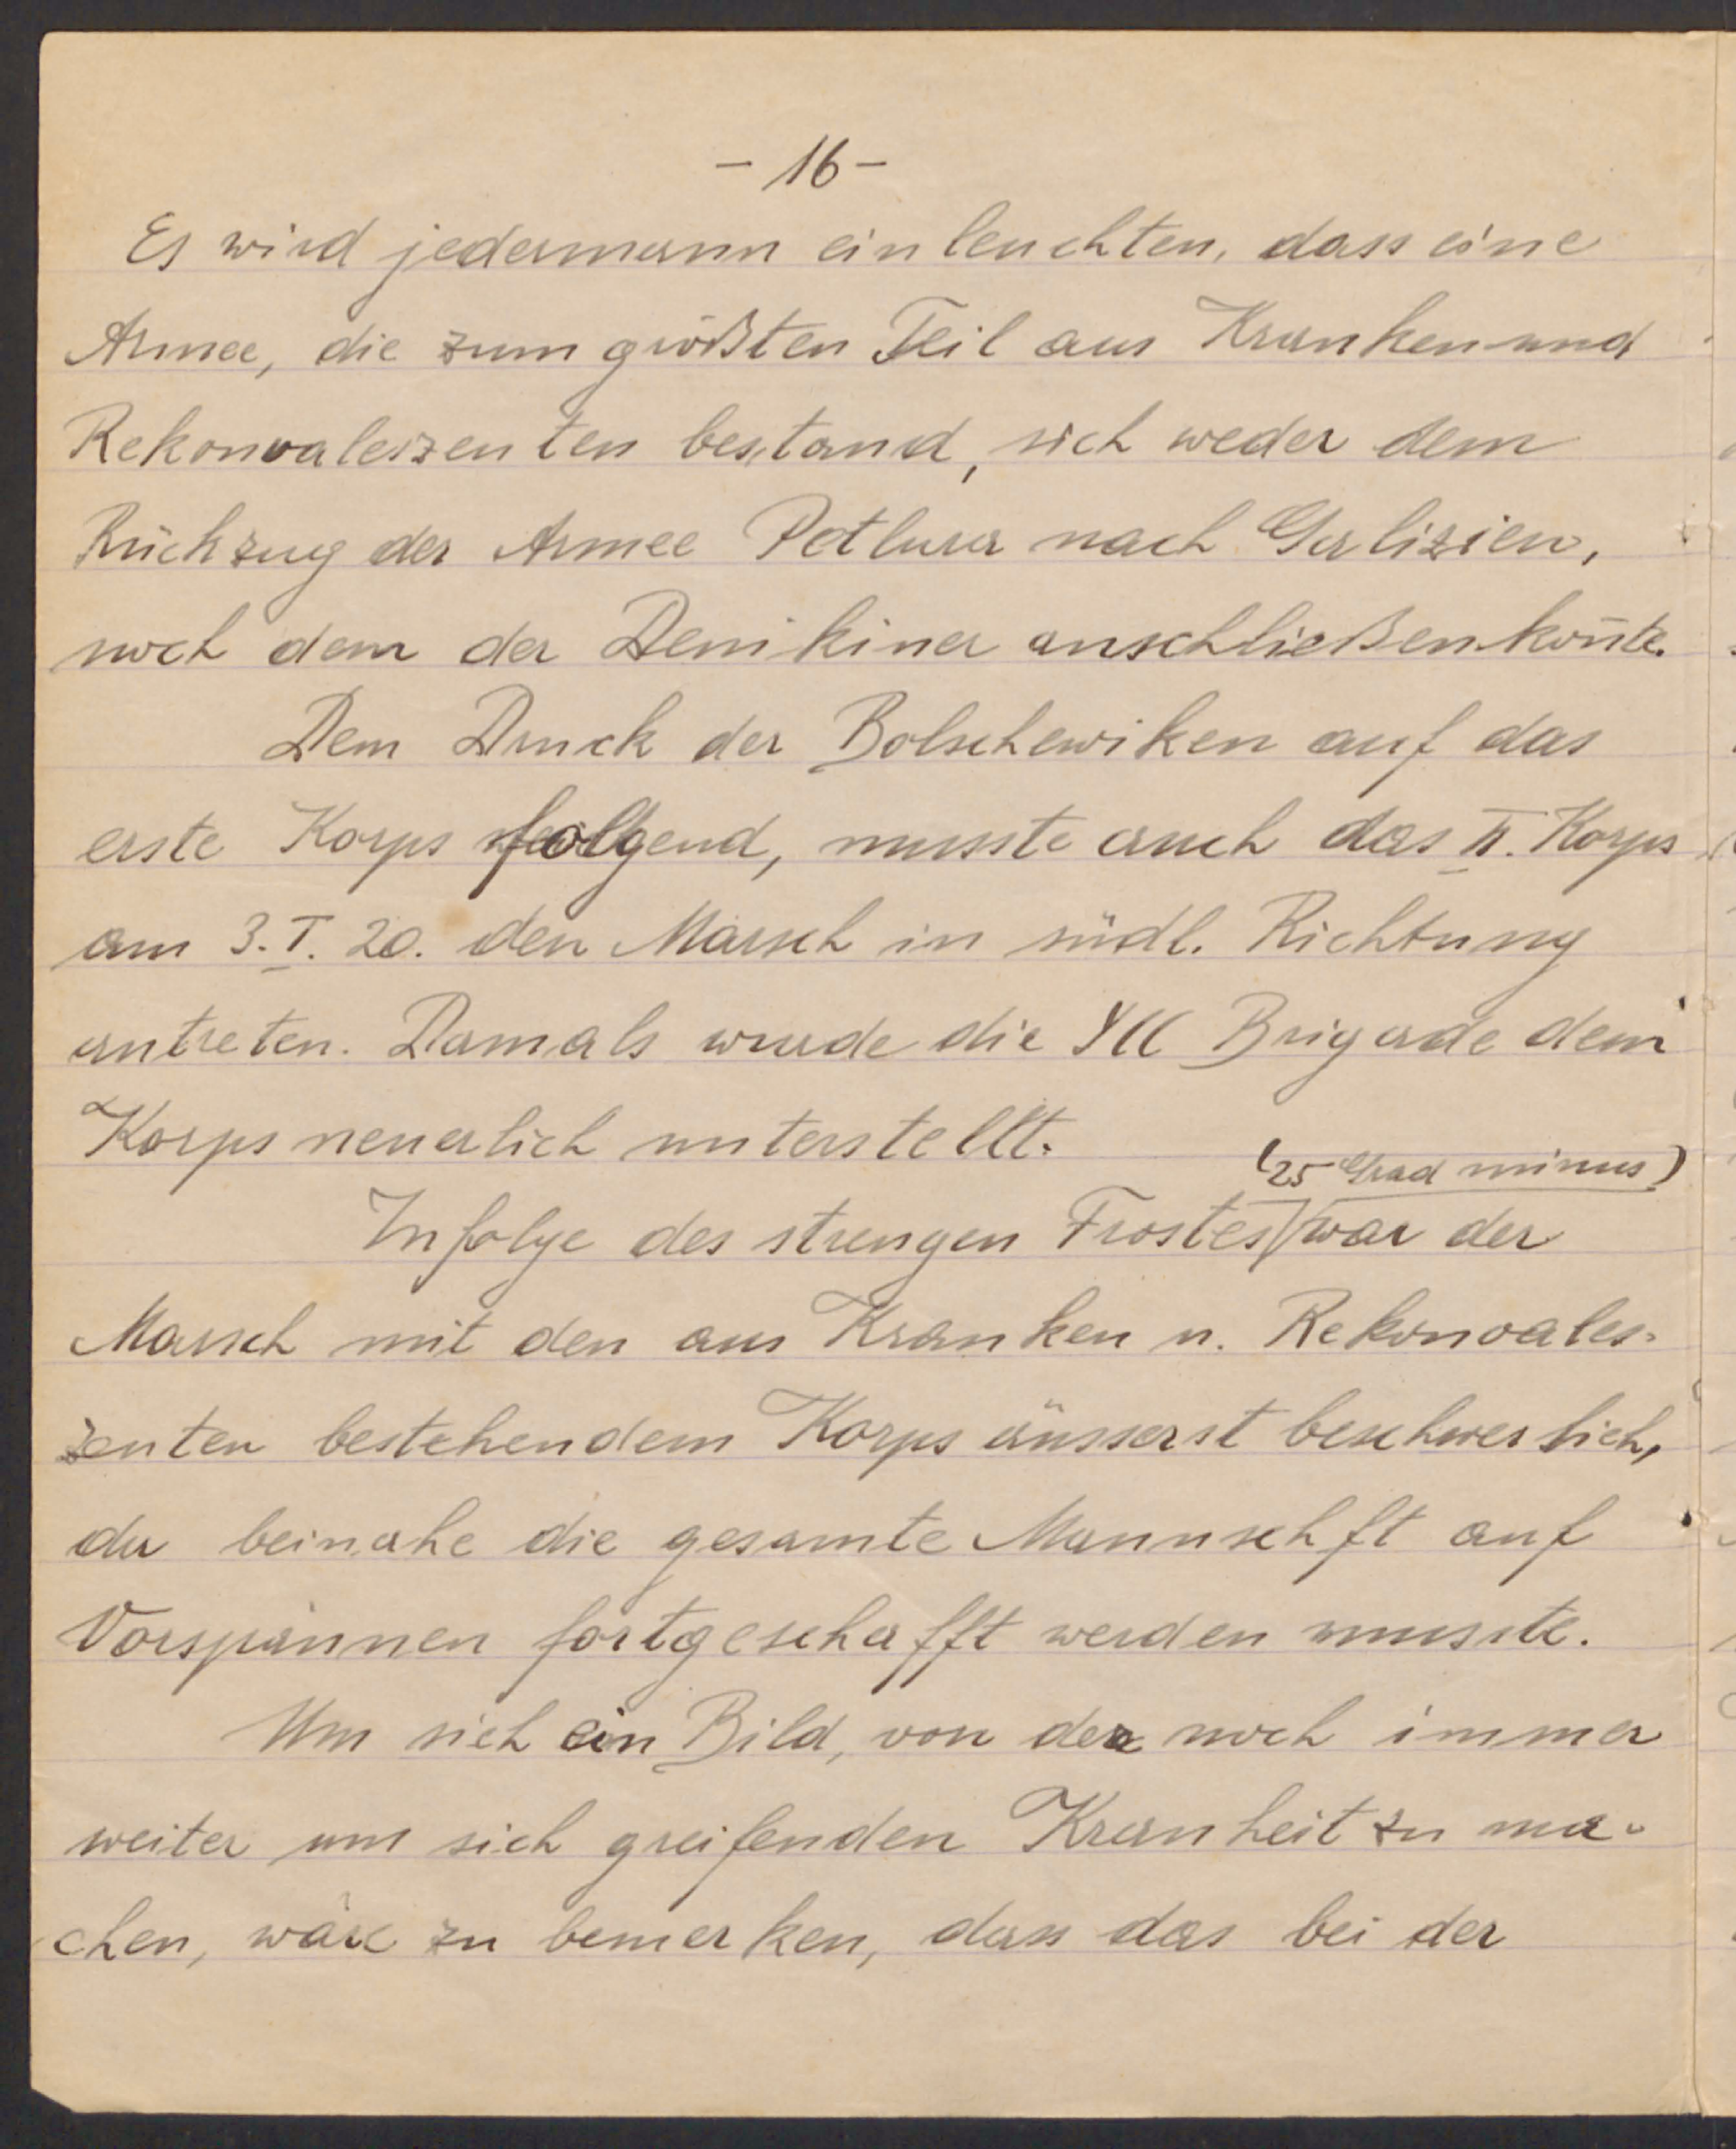 - 16 -
Es wird jedermann einleuchten, dass eine
Armee, die zum größten Teil aus Kranken und
Rekonvaleszenten bestand, sich weder dem
Rückzug der Armee Petlura nach Galizien,
noch dem der Denikiner anschließen kon̄te.
Dem Druck der Bolschewiken auf das
erste Korps folgend, musste auch das II. Korps
am 3. I. 20. den Marsch in südl. Richtung
antreten. Damals wurde die Brigade dem
Korps neuerlich unterstellt.
(25 Grad minus)
Infolge des strengen Frostes war der
Marsch mit den aus Kranken u. Rekonvales-
zenten bestehendem Korps äusserst beschwerlich,
da beinahe die gesamte Mannschft auf
Vorspännen fortgeschafft werden musste.
Um sich ein Bild, von der noch immer
weiter um sich greifenden Kranheit zu ma-
chen, wäre zu bemerken, dass das bei der